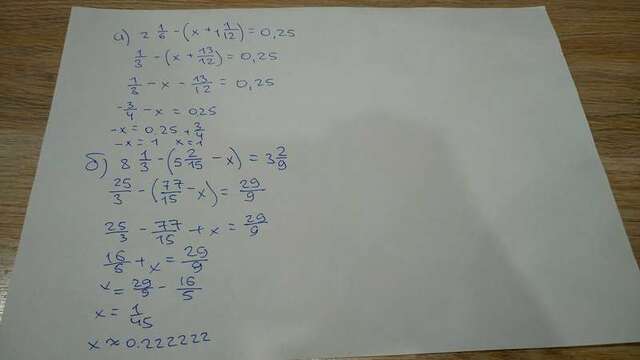 а) 2 1/6 - (x + 1 1/12) = 0,25
1/3 - (x + 13/12) = 0,25
1/3 - x - 13/12 = 0,25
-3/4 - x = 025
-x = 0.25 + 3/4
-x = 1 x = 1
б) 8 1/3 - (5 2/15 - x) = 3 2/9
25/3 - (77/15 - x) = 29/9
25/3 - 77/15 + x = 29/9
16/5 + x = 29/9
x = 29/9 - 16/5
x = 1/45
x ≈ 0.222222